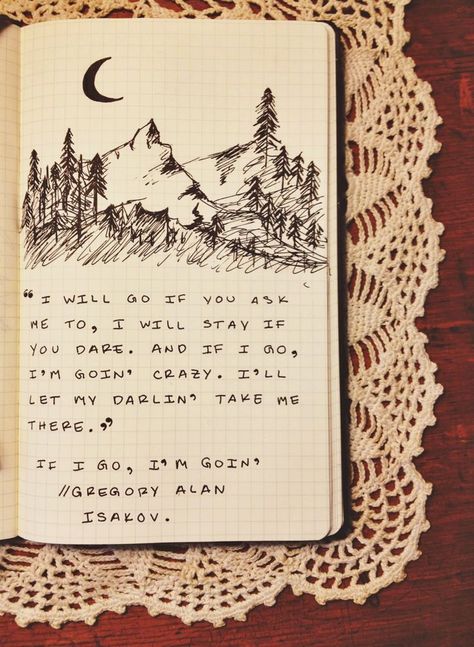 “ I WILL GO IF YOU ASK
ME TO, I WILL STAY IF
YOU DARE. AND IF I GO,
I'M GOIN' CRAZY. I'LL
LET MY DARLIN' TAKE ME
THERE.”
IF I GO, I'M GOIN'
//GREGORY ALAN
ISAKOV.